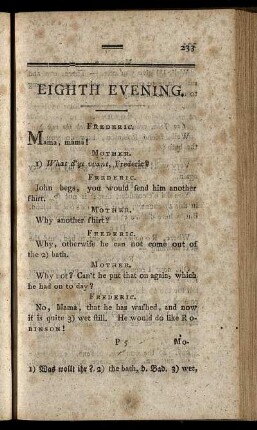 233
EIGHTH EVENING.
FREDERIC.
Mama, mama!
MOTHER.
1) What d'ye want, Frederic?
FREDERIC.
John begs, you would ſend him another
ſhirt.
MOTHER.
Why another ſhirt?
FREDERIC.
Why, otherwiſe he can not come out of
the 2) bath.
MOTHER.
Why not? Can't he put that on again, which
he has on to day?
FREDERIC.
No, Mama, that he has waſhed, and now
it is quite 3) wet ſtill. He would do like RO-
BINSON!
P 5
Mo-
1) Was wollt ihr? 2) the bath, d. Bad. 3) wet,